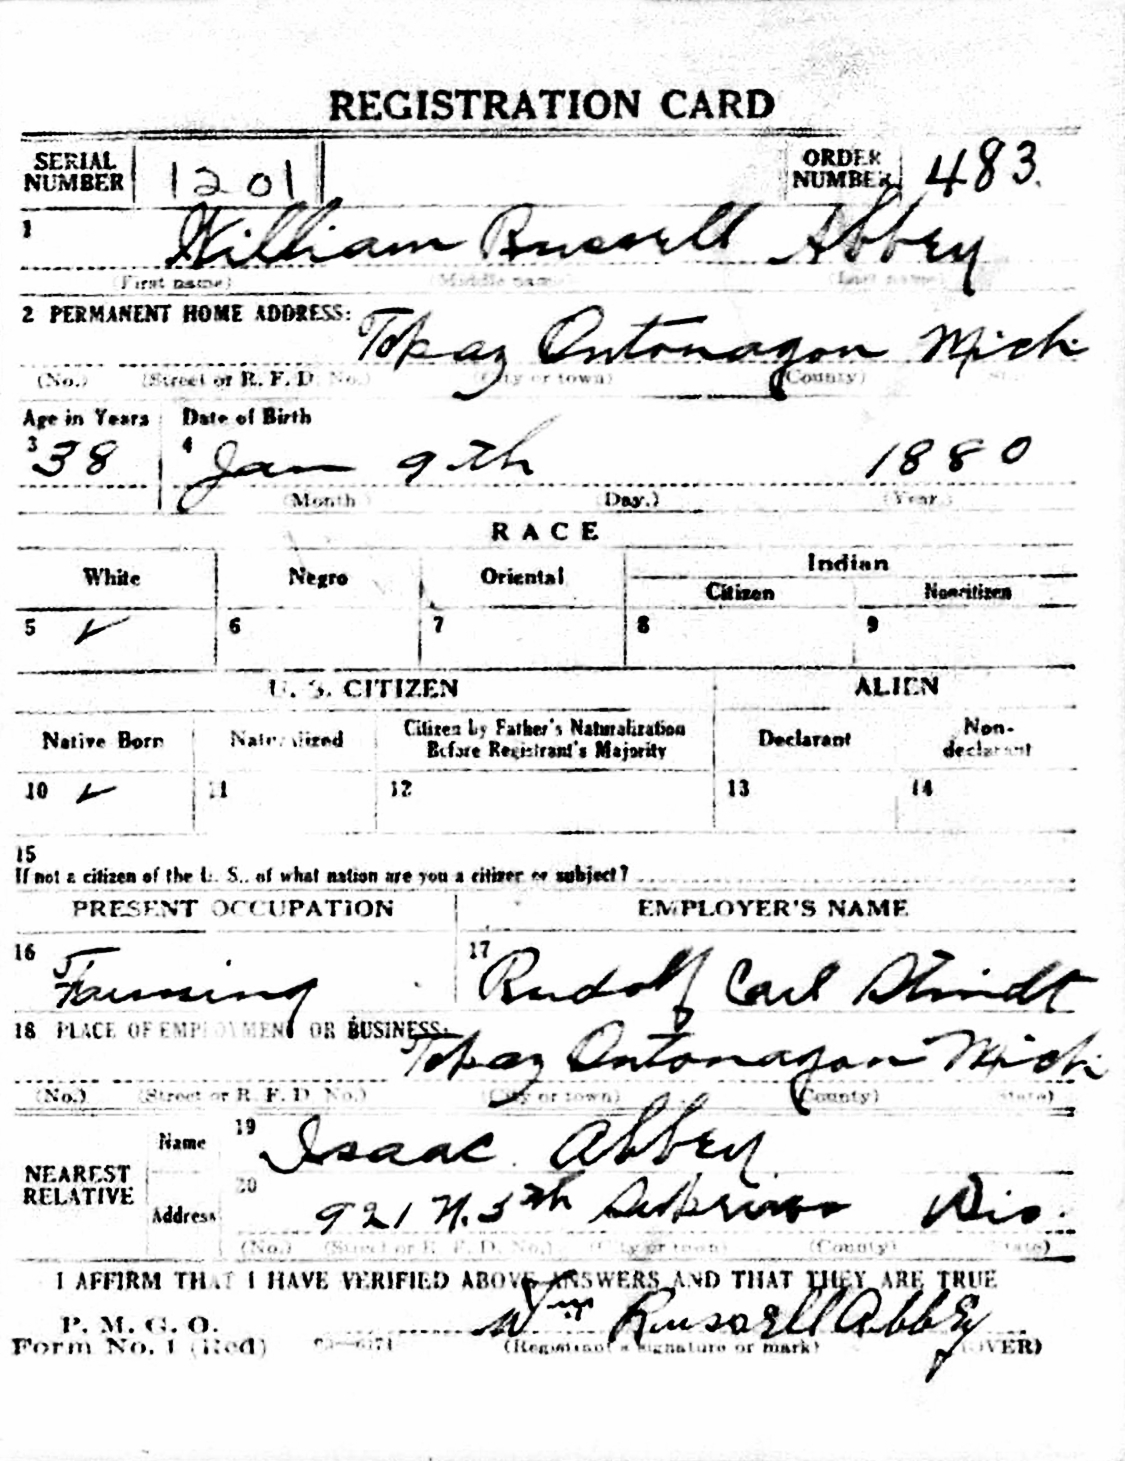 REGISTRATION CARD
SERIAL NUMBER 1201 ORDER NUMBER 483.
1 William Russell Abbey
(First name) (Middle name) (Last name)
2 PERMANENT HOME ADDRESS: Topaz Ontonagon Mich
(No.) (Street or R. F. D. No.) (City or town) (County)
Age in Years Date of Birth
3 38 4 Jan 9th 1880
(Month) (Day.) (Year.)
RACE
White Negro Oriental Indian
Citizen Noncitizen
5 ✓ 6 7 8 9
U. S. CITIZEN ALIEN
Native Born Naturalized Citizen by Father's Naturalization Before Registrant's Majority Declarant Non-declarant
10 ✓ 11 12 13 14
15
If not a citizen of the U. S., of what nation are you a citizen or subject?
PRESENT OCCUPATION EMPLOYER'S NAME
16 Farming 17 Rudolf Carl
18 PLACE OF EMPLOYMENT OR BUSINESS: Topaz Ontonagon Mich
(No.) (Street or R. F. D. No.) (City or town) (County) (State)
NEAREST RELATIVE
Name 19 Isaac Abbey
Address 20 921 N. 5th Wis.
(No.) (Street or R. F. D. No.) (City or town) (County) (State)
I AFFIRM THAT I HAVE VERIFIED ABOVE ANSWERS AND THAT THEY ARE TRUE
P. M. G. O.
Form No. 1 (Red) Wm Russell Abbey
(Registrant's signature or mark) (OVER)